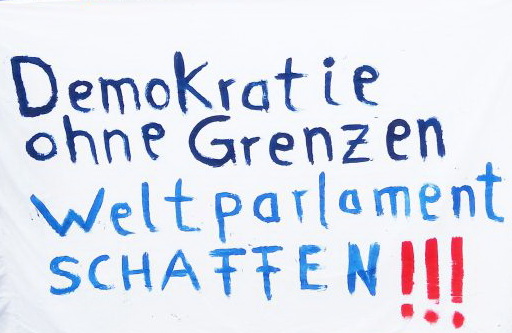 Demokratie
ohne Grenzen
Weltparlament
SCHAFFEN!!!